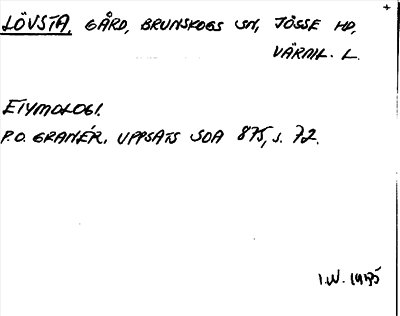 LÖVSTA, GÅRD, BRUNSKOGS SN, JÖSSE HD,
VÄRML. L.
ETYMOLOGI.
P.O. GRANÉR. UPPSATS SOA 875, S. 72.
I.W. 1975